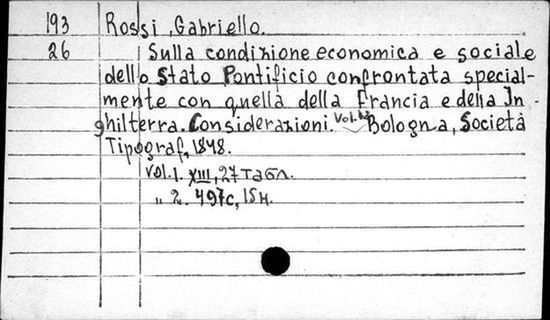 193 Rossi, Gabriello.
26 Sulla condizione economica e sociale
dello Stato Pontificio confrontata special-
mente con quella della Francia e della In-
ghilterra. Considerazioni. Vol. Bologna, Società
Tipograf, 1848.
vol. 1. XIII, 27 табл.
" 2. 497с, 15 н.